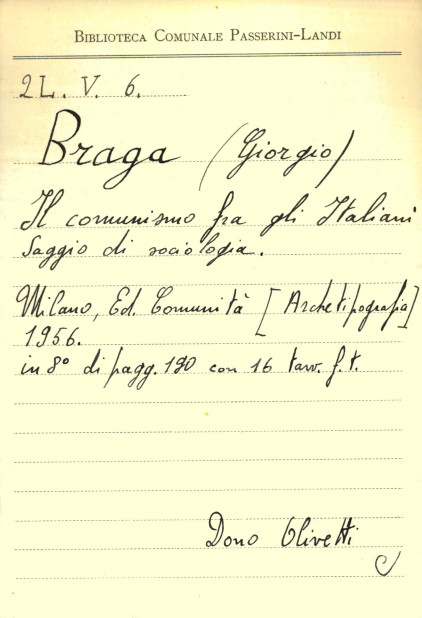 BIBLIOTECA COMUNALE PASSERINI-LANDI
2L. V. 6.
Braga (Giorgio)
Il comunismo fra gli Italiani
Saggio di sociologia.
Milano, Ed. Comunità [Archetipografia]
1956.
in 8° di pagg. 190 con 16 tavv. f.t.
Dono Olivetti